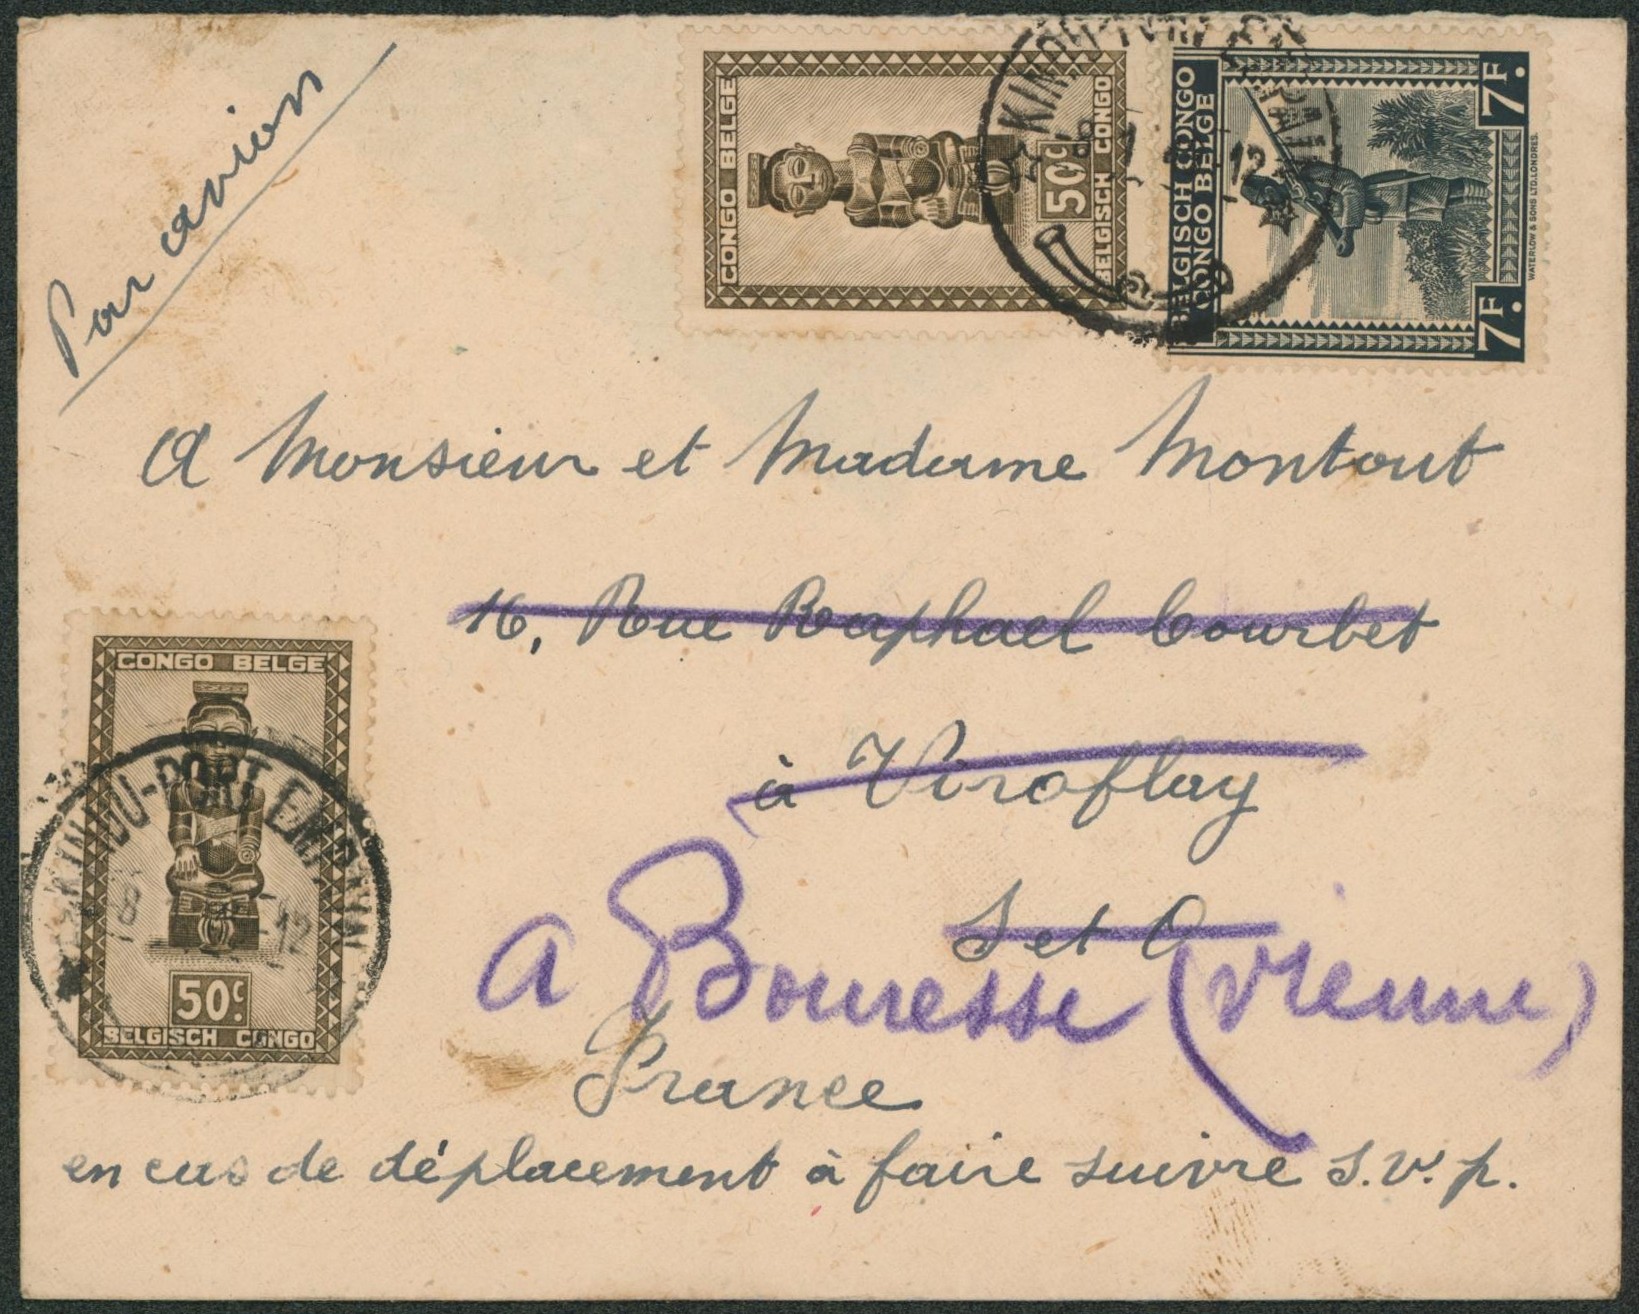 Par avion
CONGO BELGE
50c.
BELGISCH CONGO
BELGISCH CONGO
CONGO BELGE
7F.
7F.
WATERLOW & SONS LTD. LONDRES.
KINDU-PORT EMPAIN
12
A Monsieur et Madame Montout
16, Rue Raphael Courbet
à Viroflay
S et O
A Bouresse (Vienne)
France
en cas de déplacement à faire suivre S.V.p.
CONGO BELGE
50c.
BELGISCH CONGO
KINDU-PORT EMPAIN
12